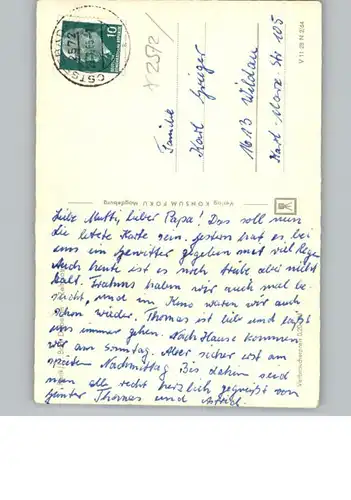 Liebe Mutti, lieber Papa! Das soll nun
die letzte Karte sein. Gestern hat es bei
uns ein Gewitter gegeben mit viel Regen
Auch heute ist es noch trübe aber nicht
kalt. haben wir auch mal be-
sucht, und im Kino waren wir auch
schon wieder. Thomas ist lieb und läßt
uns immer gehen. Nach Hause kommen
wir am Sonntag. Aber sicher erst am
späten Nachmittag Bis dahin seid
nun alle recht herzlich gegrüßt von
Günter Thomas und
Familie
Karl
1613 Wildau
Karl-Marx-Str 105
Verlag KONSUM FOKU Magdeburg
V 11-28 N 2/64
10
2572
x 2572/